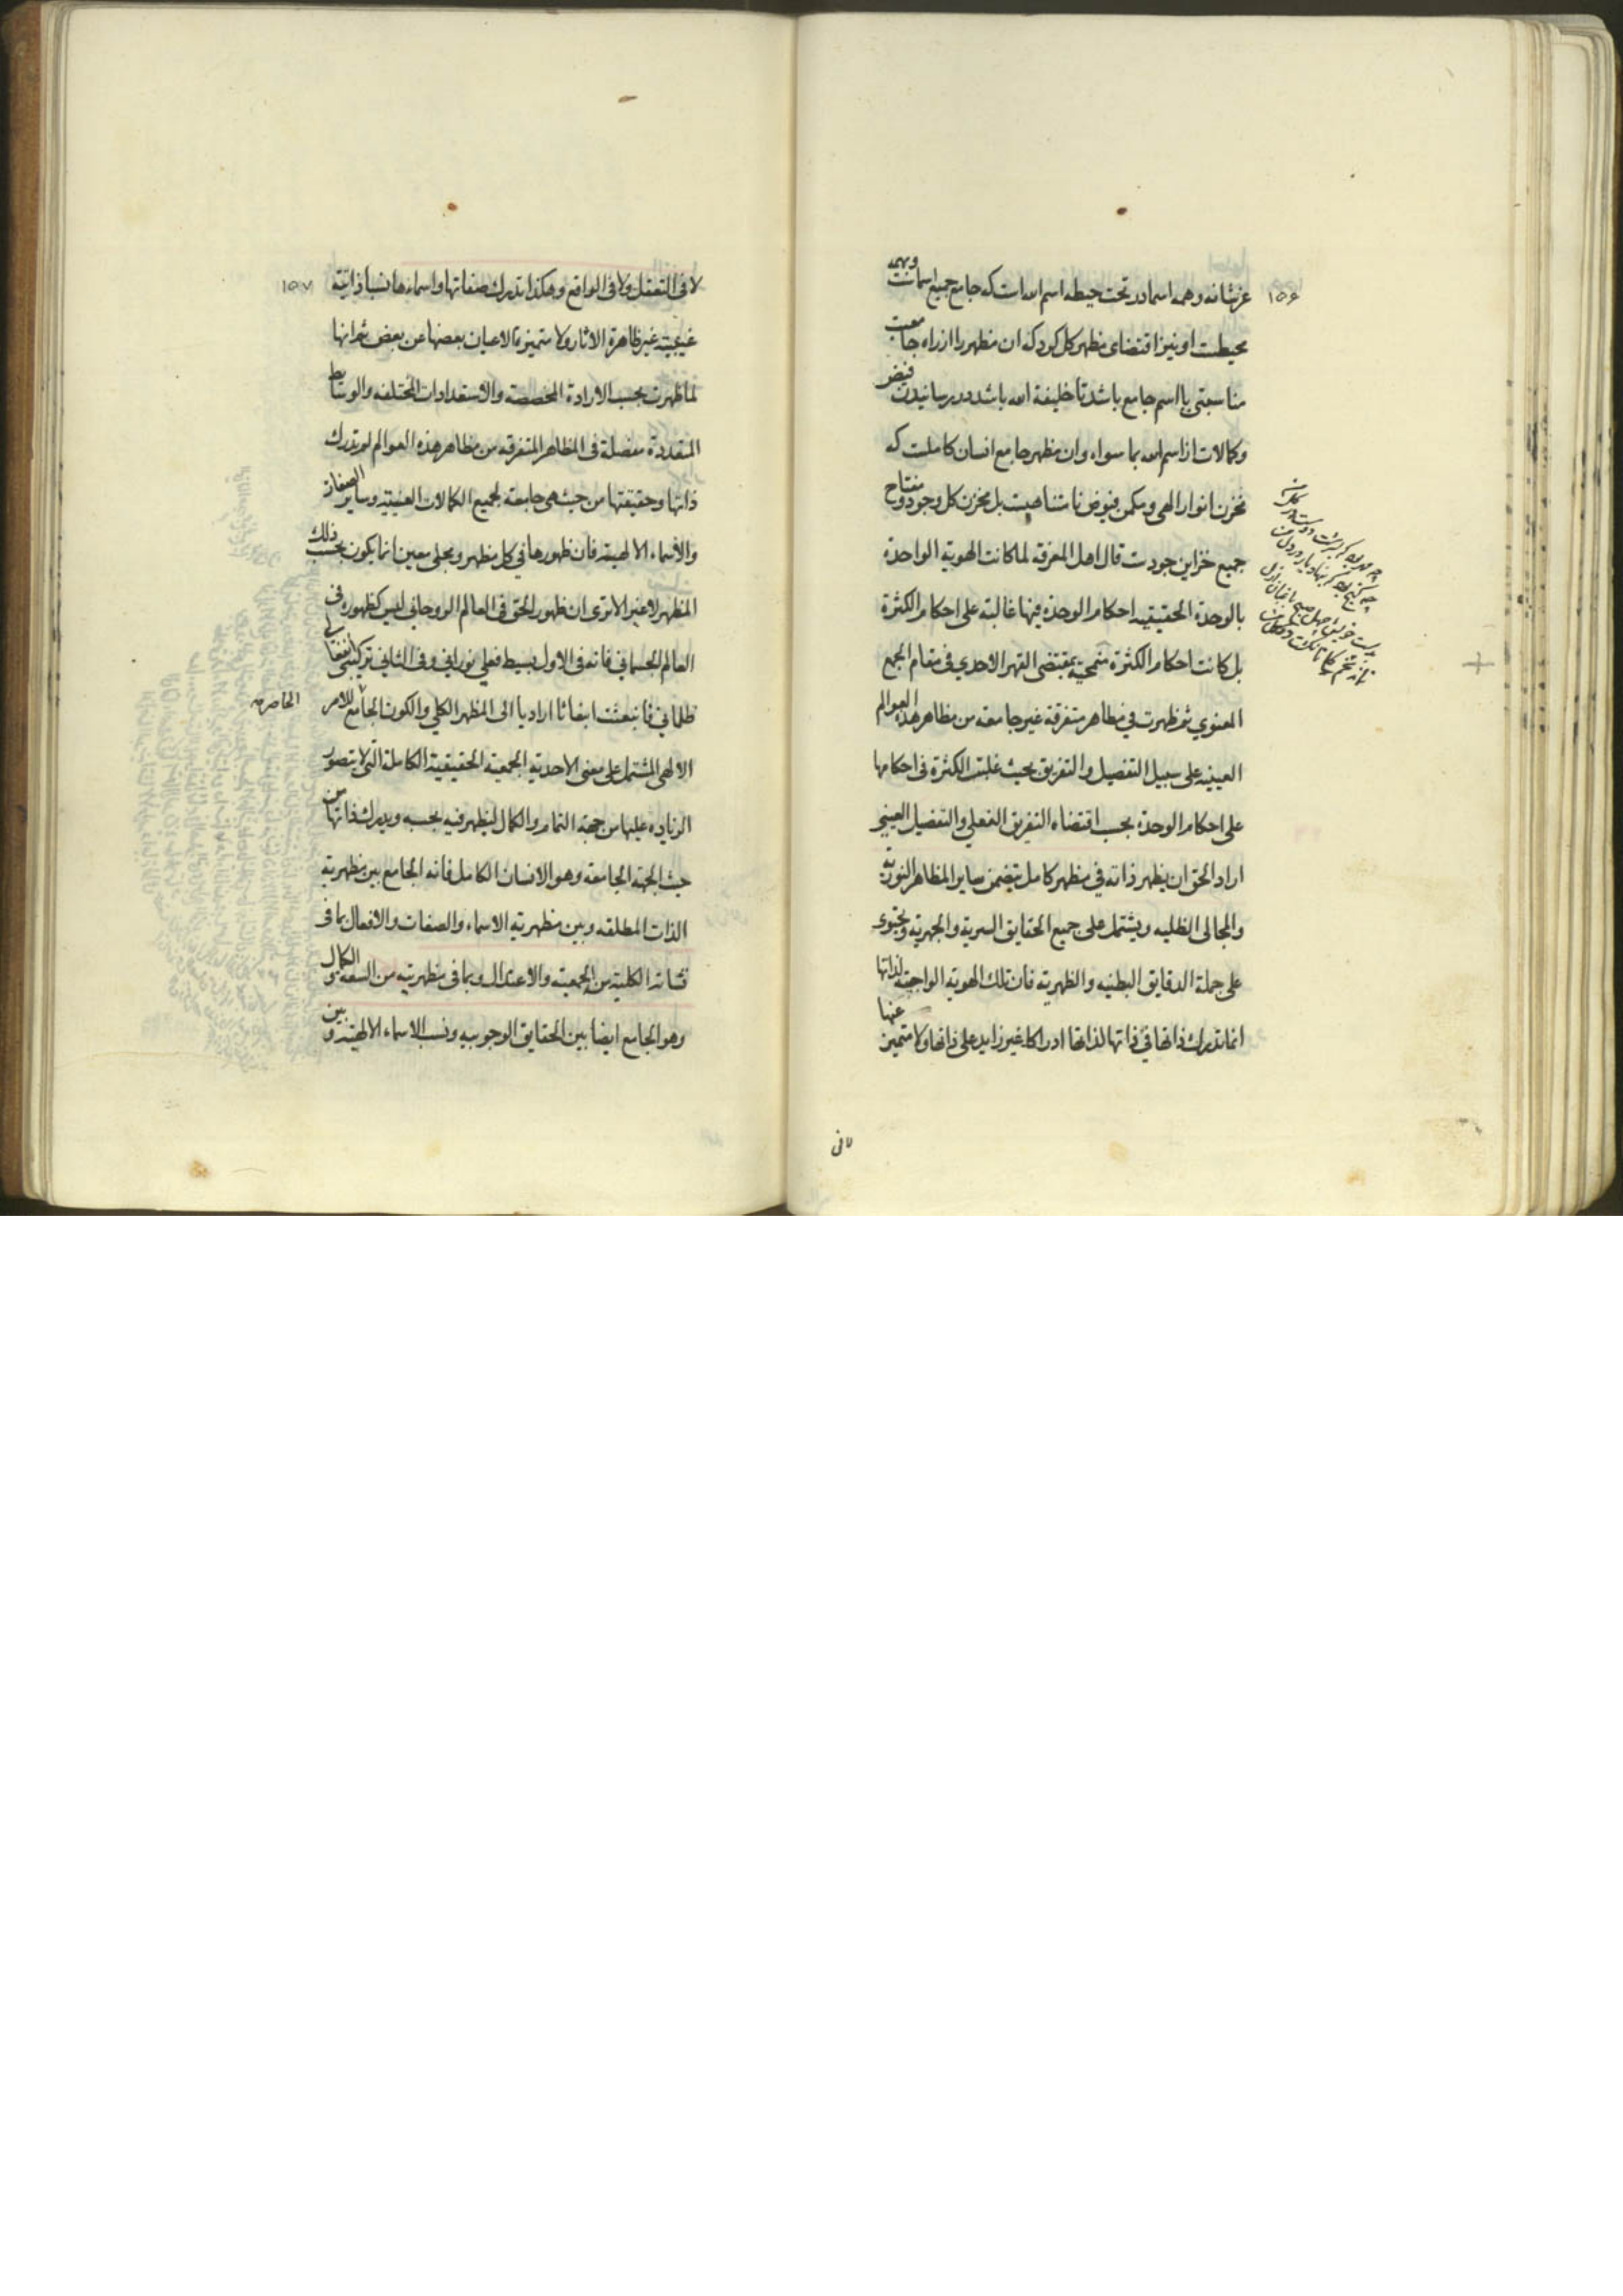 ۱۵۶
عزشانه و همه اسما در تحت حیطه اسم الله است که جامع جمیع اسمائست و بهمه
محیطست او نیز اقتضای مظهر کل کرد که ان مظهر را از راه جامعیت
مناسبتی با اسم جامع باشد تا خلیفة الله باشد در رسانیدن فیض
و کمالات از اسم الله بما سواه و ان مظهر جامع انسان کاملست که
مخزن انوار الهی و مکمن فیوض نامتناهیست بل مخزن کل وجود و مفتاح
جمیع خزاین جودست قال اهل المعرفة لما کانت الهویة الواحدة
بالوحدة الحقیقیه احکام الوحدة فیها غالبة علی احکام الکثرة
بل کانت احکام الکثرة منمحیة بمقتضی القهر الاحدی فی مقام الجمع
المعنوی ثم ظهرت فی مظاهر متفرقة غیر جامعه من مظاهر هذه العوالم
العینیه علی سبیل التفصیل و التفریق بحیث غلبت الکثرة فی احکامها
علی احکام الوحدة بحسب اقتضاء التفریق الفعلی و التفصیل العینی
اراد الحق ان یظهر ذاته فی مظهر کامل یتضمن سایر المظاهر النوریة
و المجالی الظلیه و یشتمل علی جمیع الحقایق السریة و الجهریة و یحتوی
علی جملة الدقایق البطنیه و الظهریة فان تلک الهویة الواجبة لذاتها
انما تدرک ذاتها فی ذاتها لذاتها ادراکا غیر زاید علی ذاتها و لا متمیز عنها
لا فی
۱۵۷
لا فی التعقل و لا فی الواقع و هکذا تدرک صفاتها و اسماءها نسبا ذاتیة
غیبیة غیر ظاهرة الاثار و لا متمیزة الاعیان بعضها عن بعض ثم انها
لما ظهرت بحسب الارادة المخصصة و الاستعدادات المختلفه و الوسایط
المتعددة مفصلة فی المظاهر المتفرقه من مظاهر هذه العوالم لم تدرک
ذاتها و حقیقتها من حیث هی جامعة لجمیع الکمالات العینیه و سایر الصفات
و الأسماء الالهیة فان ظهورها فی کل مظهر و مجلی معین انما یکون بحسب ذلک
المظهر لا غیر الا تری ان ظهور الحق فی العالم الروحانی لیس کظهوره فی
العالم الجسمانی فانه فی الاول بسیط فعلی نورانی و فی الثانی ترکیبی انفعالی
ظلمانی فانبعثت انبعاثا ارادیا الی المظهر الکلی و الکون الجامع للامر
الحاصر
الالهی المشتمل علی معنی الاحدیة الجمعیة الحقیقیة الکاملة التی لا یتصور
الزیاده علیها من جهة التمام و الکمال لیظهر فیه بحسبه و یدرک ذاتها من
حیث الجهة الجامعة و هو الانسان الکامل فانه الجامع بین مظهریة
الذات المطلقه و بین مظهریة الاسماء و الصفات و الافعال بما فی
نشاته الکلیة من الجمعیة و الاعتدال و بما فی مظهریته من السعه و الکمال
و هو الجامع ایضا بین الحقایق الوجوبیه و نسب الاسماء الالهیة و بین